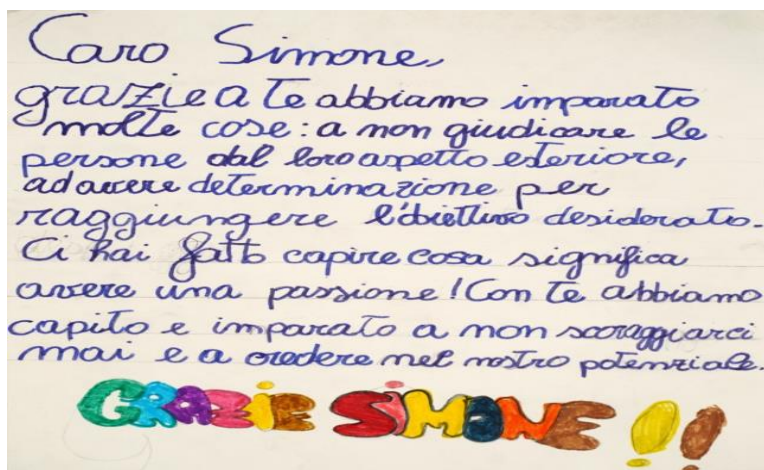 Caro Simone,
grazie a te abbiamo imparato
molte cose: a non giudicare le
persone dal loro aspetto esteriore,
ad avere determinazione per
raggiungere l'obiettivo desiderato.
Ci hai fatto capire cosa significa
avere una passione! Con te abbiamo
capito e imparato a non scoraggiarci
mai e a credere nel nostro potenziale.
GRAZIE SIMONE!!